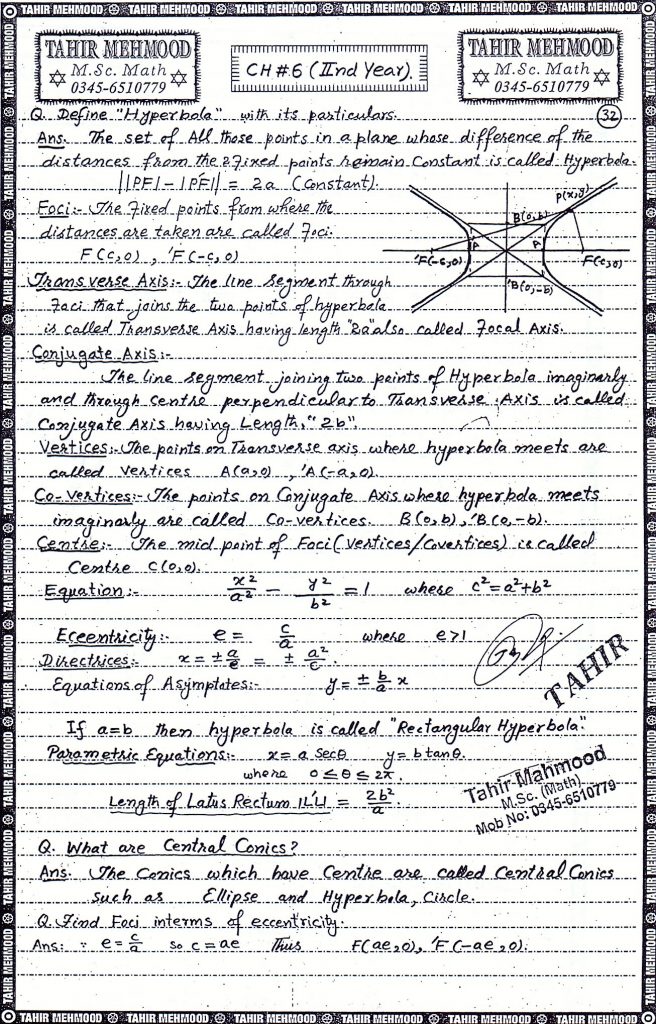 TAHIR MEHMOOD TAHIR MEHMOOD TAHIR MEHMOOD TAHIR MEHMOOD TAHIR MEHMOOD TAHIR MEHMOOD TAHIR MEHMOOD
TAHIR MEHMOOD
M.Sc. Math
0345-6510779
CH#6 (IInd Year).
TAHIR MEHMOOD
M.Sc. Math
0345-6510779
32
Q. Define "Hyperbola" with its particulars.
Ans. The set of All those points in a plane whose difference of the
distances from the 2 fixed points remain Constant is called Hyperbola.
||PF| - |P'F|| = 2a (Constant).
Foci:- The fixed points from where the
distances are taken are called foci.
F(c,0) , 'F(-c,0)
P(x,y)
B(0,b)
A
A
'F(-c,0)
F(c,0)
'B(0,-b)
Transverse Axis:- The line segment through
foci that joins the two points of hyperbola
is called Transverse Axis having length "2a" also called Focal Axis.
Conjugate Axis:-
The line segment joining two points of Hyperbola imaginarly
and through centre perpendicular to Transverse Axis is called
Conjugate Axis having Length "2b".
Vertices:- The points on Transverse axis where hyperbola meets are
called vertices A(a,0) , 'A(-a,0)
Co-vertices:- The points on Conjugate Axis where hyperbola meets
imaginarly are called Co-vertices. B(0,b), 'B(0,-b).
Centre:- The mid point of Foci (vertices/Covertices) is called
Centre C(0,0).
Equation:- x²/a² - y²/b² = 1 where c²=a²+b²
Eccentricity:- e = c/a where e>1
Directrices:- x = ± a/e = ± a²/c
Equations of Asymptotes:- y = ± b/a x
TAHIR
If a=b then hyperbola is called "Rectangular Hyperbola."
Parametric Equations:- x = a Secθ y = b tanθ.
where 0 ≤ θ ≤ 2π.
Length of Latus Rectum |L'L| = 2b²/a
Tahir Mahmood
M.Sc. (Math)
Mob No: 0345-6510779
Q. What are Central Conics?
Ans. The Conics which have Centre are called Central Conics
such as Ellipse and Hyperbola, Circle.
Q. Find Foci interms of eccentricity.
Ans: ∵ e = c/a so c = ae Thus F(ae,0), 'F(-ae,0).
TAHIR MEHMOOD TAHIR MEHMOOD TAHIR MEHMOOD TAHIR MEHMOOD TAHIR MEHMOOD TAHIR MEHMOOD TAHIR MEHMOOD